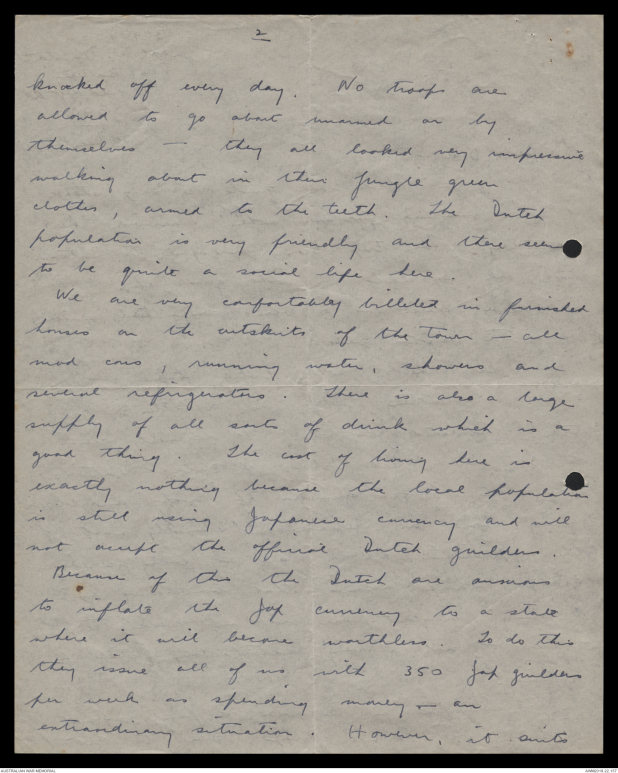 2
knocked off every day. No troops are
allowed to go about unarmed or by
themselves — they all looked very impressive
walking about in their jungle green
clothes, armed to the teeth. The Dutch
population is very friendly and there seems
to be quite a social life here.
We are very comfortably billeted in furnished
houses on the outskirts of the town — all
mod cons, running water, showers and
several refrigerators. There is also a large
supply of all sorts of drink which is a
good thing. The cost of living here is
exactly nothing because the local population
is still using Japanese currency and will
not accept the official Dutch guilders.
Because of this the Dutch are anxious
to inflate the Jap currency to a state
where it will become worthless. To do this
they issue all of us with 350 Jap guilders
per week as spending money — an
extraordinary situation. However, it suits
AUSTRALIAN WAR MEMORIAL